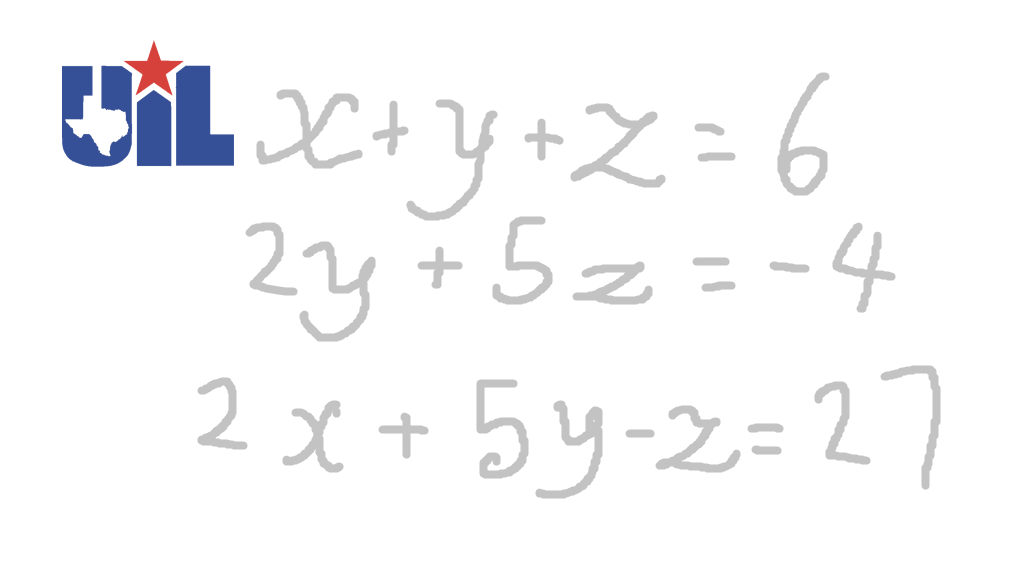 UIL
x + y + z = 6
2y + 5z = -4
2x + 5y - z = 27